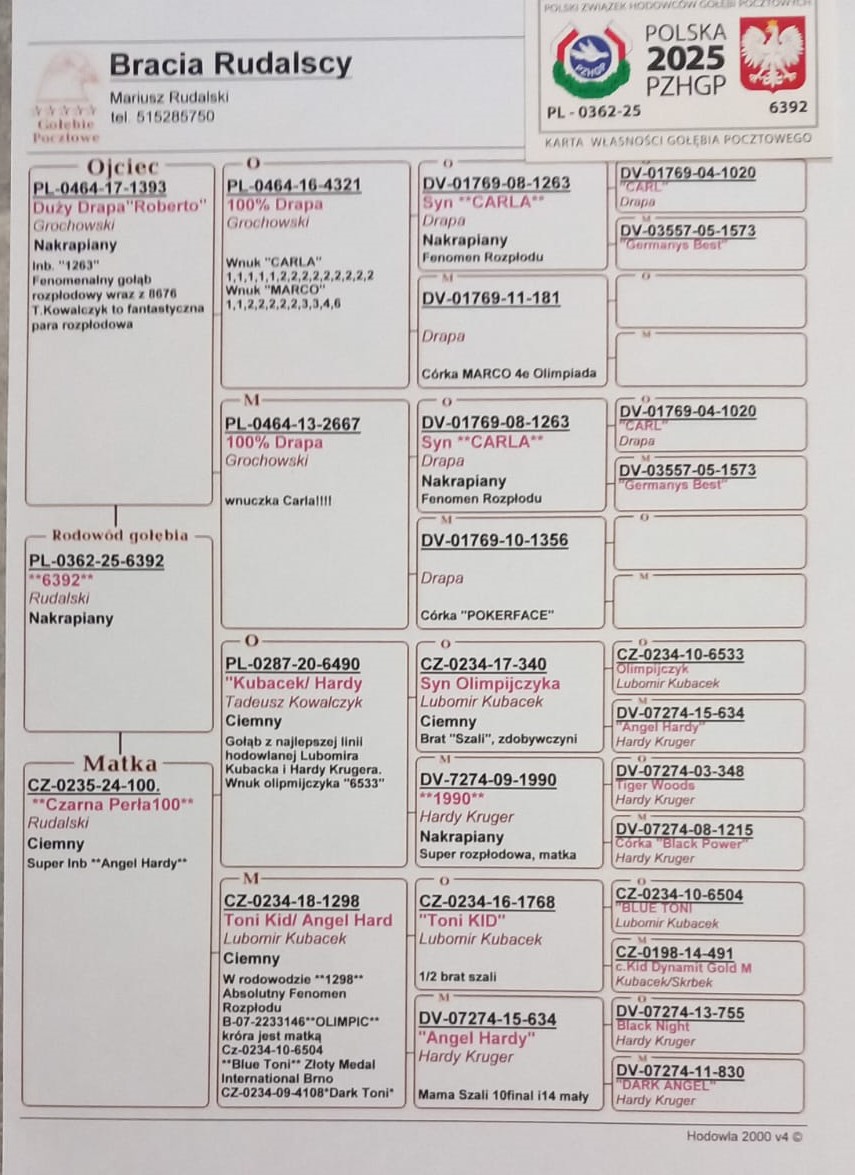 POLSKI ZWIĄZEK HODOWCÓW GOŁĘBI POCZTOWYCH
POLSKA
2025
PZHGP
PZHGP
PL - 0362-25
6392
KARTA WŁASNOŚCI GOŁĘBIA POCZTOWEGO
Bracia Rudalscy
Mariusz Rudalski
tel. 515285750
Gołębie
Pocztowe
Ojciec
PL-0464-17-1393
Duży Drapa"Roberto"
Grochowski
Nakrapiany
Inb. "1263"
Fenomenalny gołąb
rozpłodowy wraz z 8676
T.Kowalczyk to fantastyczna
para rozpłodowa
Rodowód gołębia
PL-0362-25-6392
**6392**
Rudalski
Nakrapiany
Matka
CZ-0235-24-100.
**Czarna Perła100**
Rudalski
Ciemny
Super Inb **Angel Hardy**
O
PL-0464-16-4321
100% Drapa
Grochowski
Wnuk "CARLA"
1,1,1,1,1,2,2,2,2,2,2,2,2,2
Wnuk "MARCO"
1,1,2,2,2,2,2,3,3,4,6
M
PL-0464-13-2667
100% Drapa
Grochowski
wnuczka Carla!!!!
O
PL-0287-20-6490
"Kubacek/ Hardy
Tadeusz Kowalczyk
Ciemny
Gołąb z najlepszej linii
hodowlanej Lubomira
Kubacka i Hardy Krugera.
Wnuk olipmijczyka "6533"
M
CZ-0234-18-1298
Toni Kid/ Angel Hard
Lubomir Kubacek
Ciemny
W rodowodzie **1298**
Absolutny Fenomen
Rozpłodu
B-07-2233146**OLIMPIC**
króra jest matką
Cz-0234-10-6504
**Blue Toni** Złoty Medal
International Brno
CZ-0234-09-4108*Dark Toni*
O
DV-01769-08-1263
Syn **CARLA**
Drapa
Nakrapiany
Fenomen Rozpłodu
M
DV-01769-11-181
Drapa
Córka MARCO 4e Olimpiada
O
DV-01769-08-1263
Syn **CARLA**
Drapa
Nakrapiany
Fenomen Rozpłodu
M
DV-01769-10-1356
Drapa
Córka "POKERFACE"
O
CZ-0234-17-340
Syn Olimpijczyka
Lubomir Kubacek
Ciemny
Brat "Szali", zdobywczyni
M
DV-7274-09-1990
**1990**
Hardy Kruger
Nakrapiany
Super rozpłodowa, matka
O
CZ-0234-16-1768
"Toni KID"
Lubomir Kubacek
1/2 brat szali
M
DV-07274-15-634
"Angel Hardy"
Hardy Kruger
Mama Szali 10final i14 mały
DV-01769-04-1020
"CARL"
Drapa
M
DV-03557-05-1573
"Germanys Best"
O
M
O
DV-01769-04-1020
"CARL"
Drapa
M
DV-03557-05-1573
"Germanys Best"
O
M
O
CZ-0234-10-6533
Olimpijczyk
Lubomir Kubacek
M
DV-07274-15-634
"Angel Hardy"
Hardy Kruger
O
DV-07274-03-348
Tiger Woods
Hardy Kruger
M
DV-07274-08-1215
Córka "Black Power"
Hardy Kruger
O
CZ-0234-10-6504
"BLUE TONI
Lubomir Kubacek
M
CZ-0198-14-491
c.Kid Dynamit Gold M
Kubacek/Skrbek
O
DV-07274-13-755
Black Night
Hardy Kruger
M
DV-07274-11-830
"DARK ANGEL"
Hardy Kruger
Hodowla 2000 v4 ©